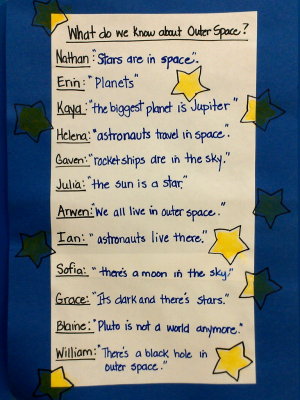 What do we know about Outer Space?
Nathan: "Stars are in space".
Erin: "Planets"
Kaya: "the biggest planet is Jupiter"
Helena: "astronauts travel in space".
Gaven: "rocketships are in the sky."
Julia: "the sun is a star."
Arwen: "We all live in outer space."
Ian: "astronauts live there."
Sofia: "there's a moon in the sky."
Grace: "Its dark and there's stars."
Blaine: "Pluto is not a world anymore."
William: "There's a black hole in
outer space."